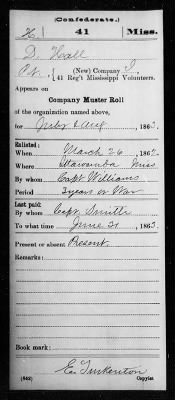 (Confederate.)
H. 41 Miss.
D. Hall
Pvt., (New) Company I,
41 Reg't Mississippi Volunteers.
Appears on
Company Muster Roll
of the organization named above,
for July & Aug, 1863.
Enlisted:
When March 26, 1862.
Where Itawamba Miss
By whom Capt Williams
Period 3 years or War
Last paid:
By whom Capt Smith
To what time June 31, 1863.
Present or absent Present.
Remarks:
Book mark:
(642) Copyist.